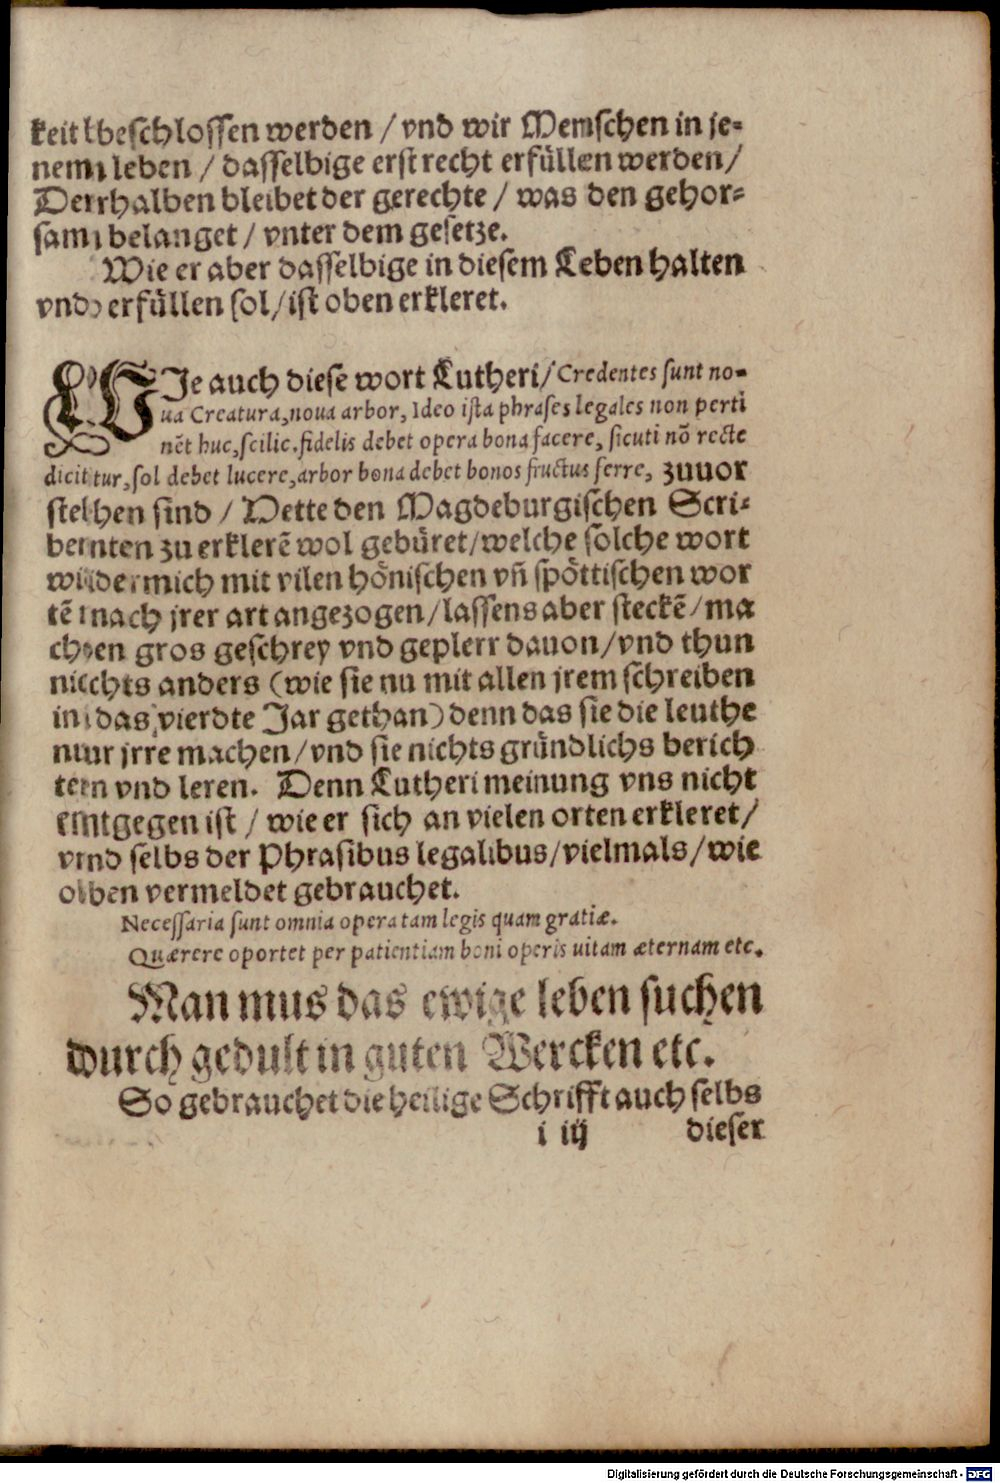 keit beschlossen werden / vnd wir Menschen in je-
nem leben / dasselbige erst recht erfüllen werden /
Derhalben bleibet der gerechte / was den gehor-
sam belanget / vnter dem gesetze.
Wie er aber dasselbige in diesem Leben halten
vnd erfüllen sol / ist oben erkleret.
WIe auch diese wort Lutheri / Credentes sunt no-
ua Creatura, noua arbor, Ideo ista phrases legales non perti
nēt huc, scilic. fidelis debet opera bona facere, sicuti nō recte
dicitur, sol debet lucere, arbor bona debet bonos fructus ferre, zuuor
stehen sind / Hette den Magdeburgischen Scri-
benten zu erklerē wol gebüret / welche solche wort
wider mich mit vilen hönischen vñ spöttischen wor
tē nach jrer art angezogen / lassens aber steckē / ma
chen gros geschrey vnd geplerr dauon / vnd thun
nichts anders (wie sie nu mit allen jrem schreiben
in das vierdte Jar gethan) denn das sie die leuthe
nur jrre machen / vnd sie nichts gründlichs berich
ten vnd leren. Denn Lutheri meinung vns nicht
entgegen ist / wie er sich an vielen orten erkleret /
vnd selbs der Phrasibus legalibus / vielmals / wie
oben vermeldet gebrauchet.
Necessaria sunt omnia opera tam legis quam gratiæ.
Quærere oportet per patientiam boni operis uitam æternam etc.
Man mus das ewige leben suchen
durch gedult in guten Wercken etc.
So gebrauchet die heilige Schrifft auch selbs
i iij dieser
Digitalisierung gefördert durch die Deutsche Forschungsgemeinschaft - DFG